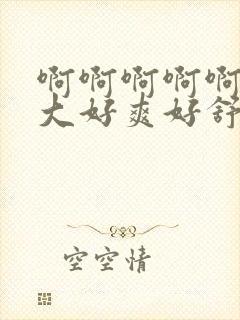 啊啊啊啊啊
大好爽好舒
空空情